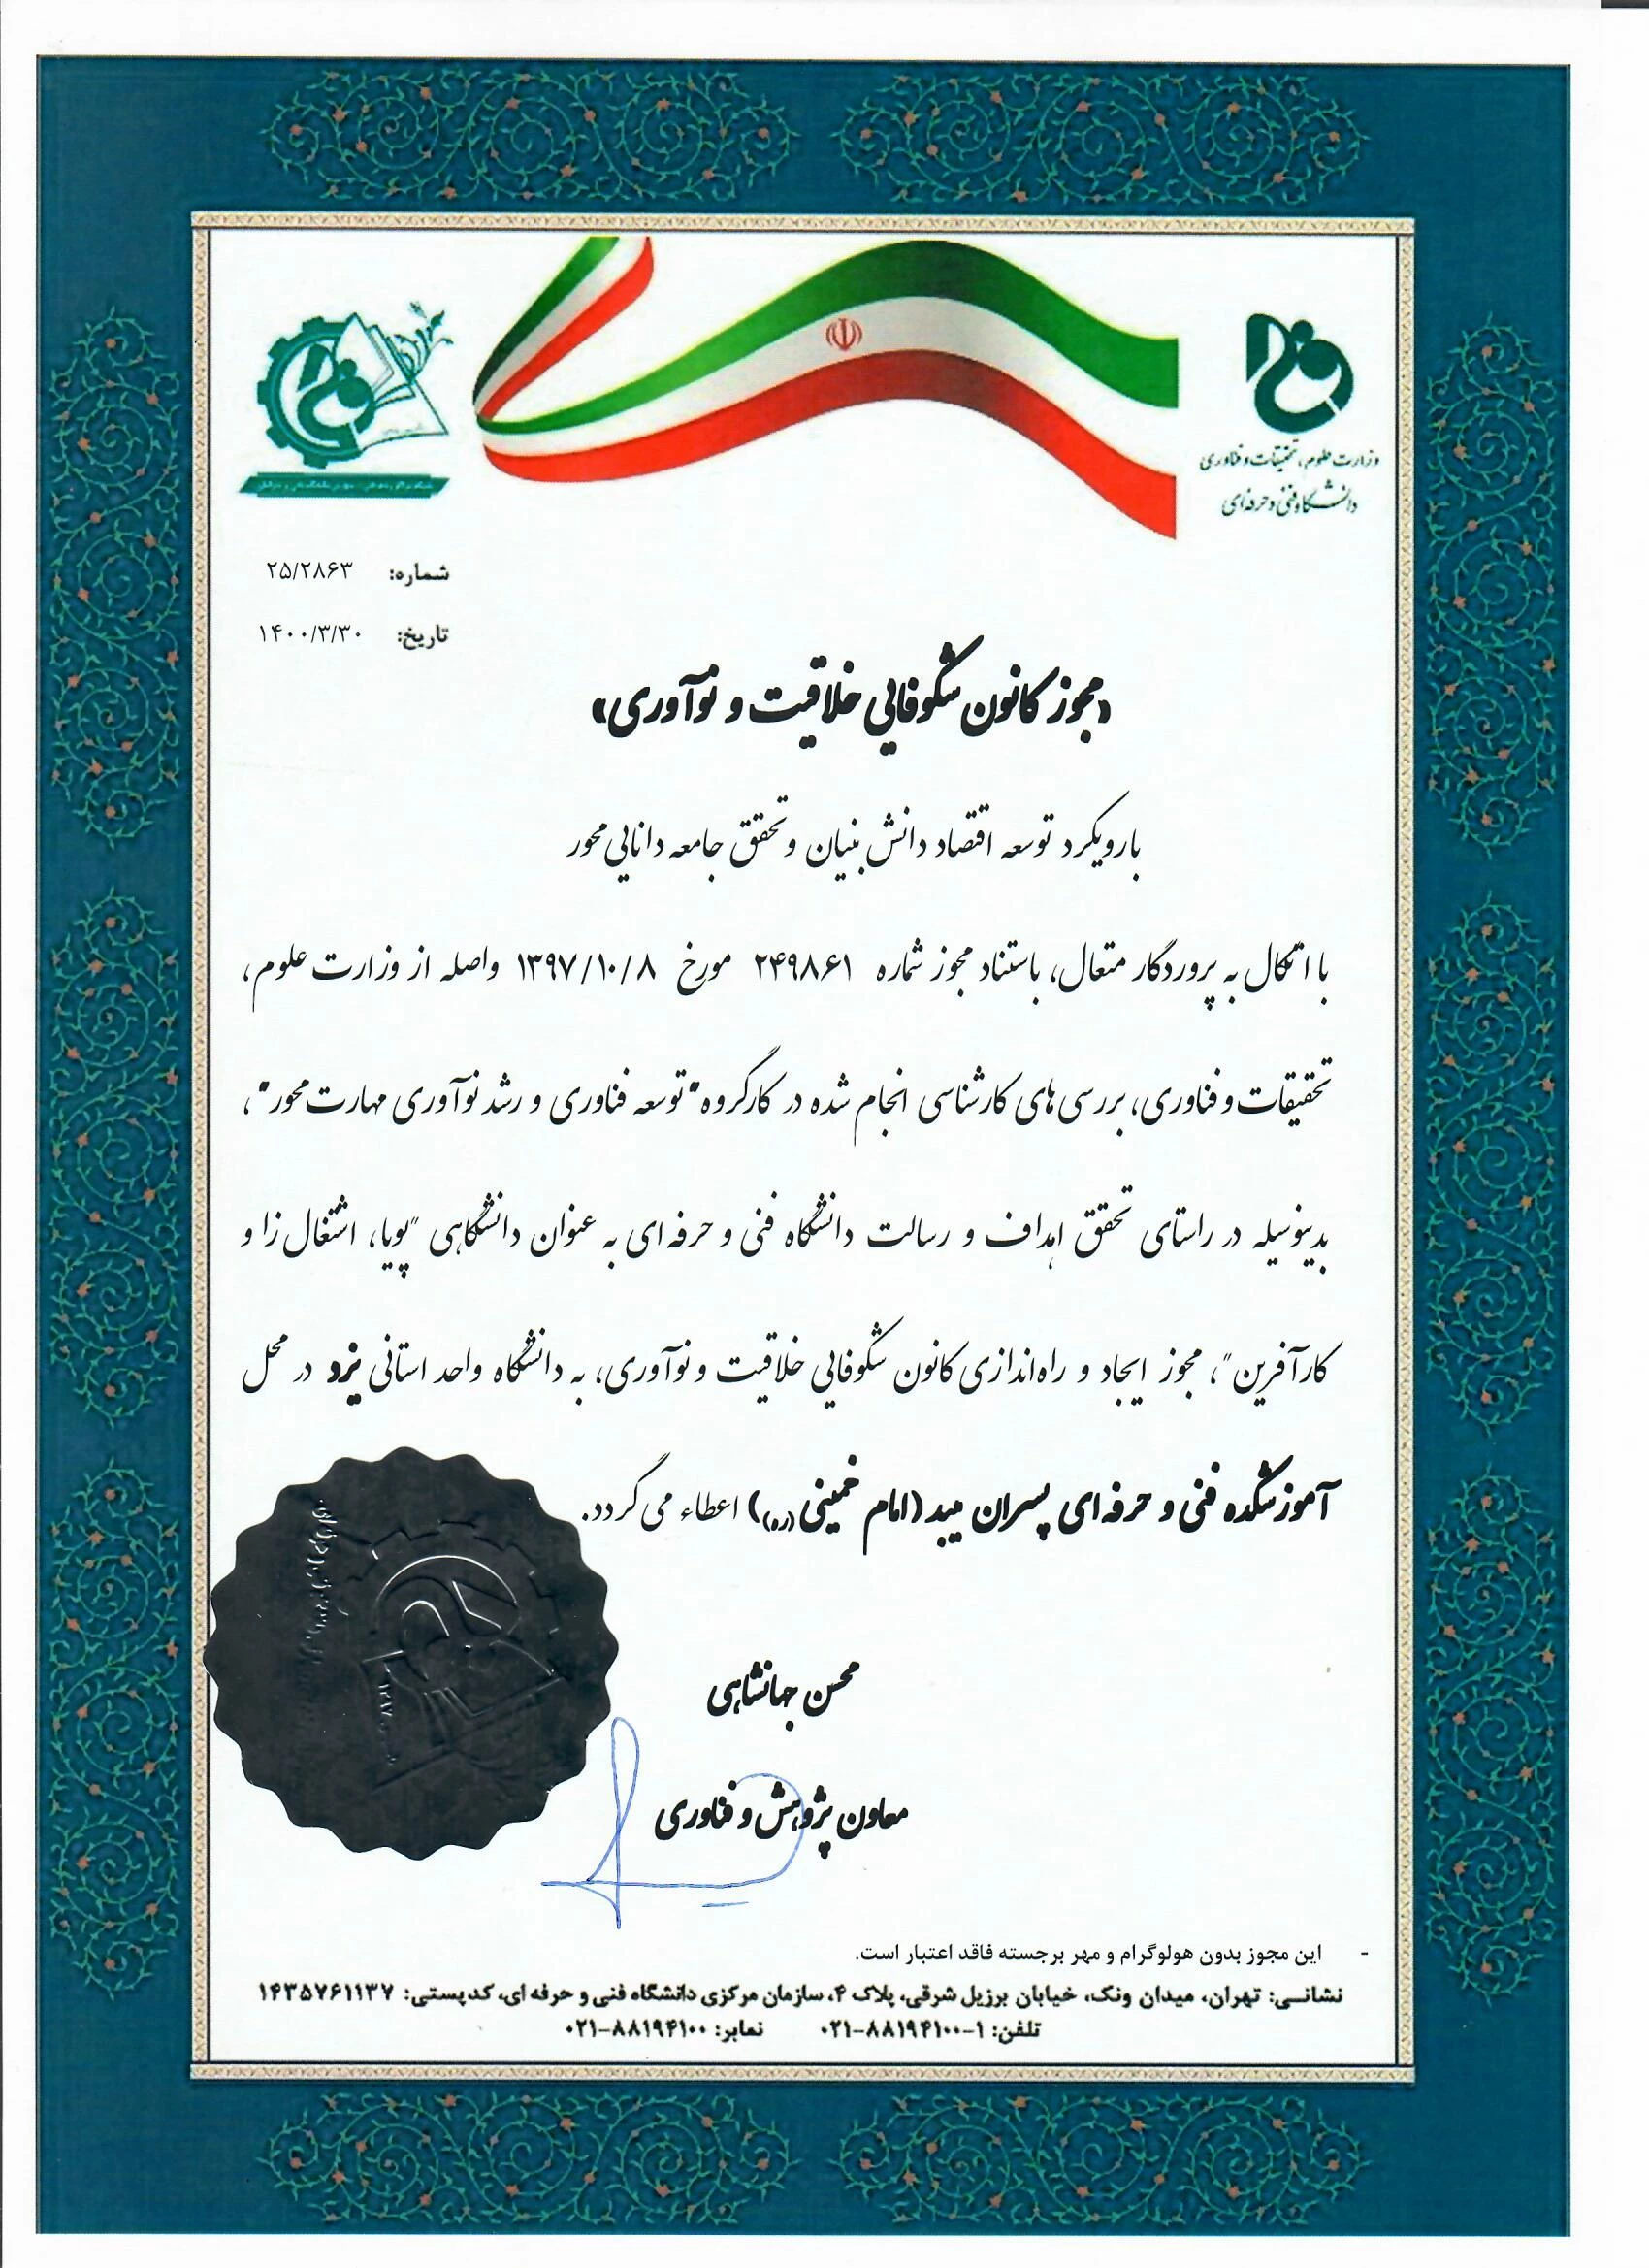 وزارت علوم، تحقیقات و فناوری
دانشگاه فنی و حرفه‌ای
شماره: ۲۵/۲۸۶۳
تاریخ: ۱۴۰۰/۳/۳۰
«مجوز کانون شکوفایی خلاقیت و نوآوری»
با رویکرد توسعه اقتصاد دانش بنیان و تحقق جامعه دانایی محور
با اتکال به پروردگار متعال، باستناد مجوز شماره ۲۴۹۸۶۱ مورخ ۱۳۹۷/۱۰/۸ واصله از وزارت علوم،
تحقیقات و فناوری، بررسی‌های کارشناسی انجام شده در کارگروه "توسعه فناوری و رشد نوآوری مهارت محور"،
بدینوسیله در راستای تحقق اهداف و رسالت دانشگاه فنی و حرفه‌ای به عنوان دانشگاهی "پویا، اشتغال زا و
کارآفرین"، مجوز ایجاد و راه‌اندازی کانون شکوفایی خلاقیت و نوآوری، به دانشگاه واحد استانی یزد در محل
آموزشکده فنی و حرفه‌ای پسران میبد (امام خمینی(ره)) اعطاء می گردد.
محسن جهانشاهی
معاون پژوهش و فناوری
- این مجوز بدون هولوگرام و مهر برجسته فاقد اعتبار است.
نشانـی: تهران، میدان ونک، خیابان برزیل شرقی، پلاک ۴، سازمان مرکزی دانشگاه فنی و حرفه ای، کدپستی: ۱۴۳۵۷۶۱۱۳۷
تلفن: ۱-۰۲۱-۸۸۱۹۴۱۰۰ نمابر: ۰۲۱-۸۸۱۹۴۱۰۰